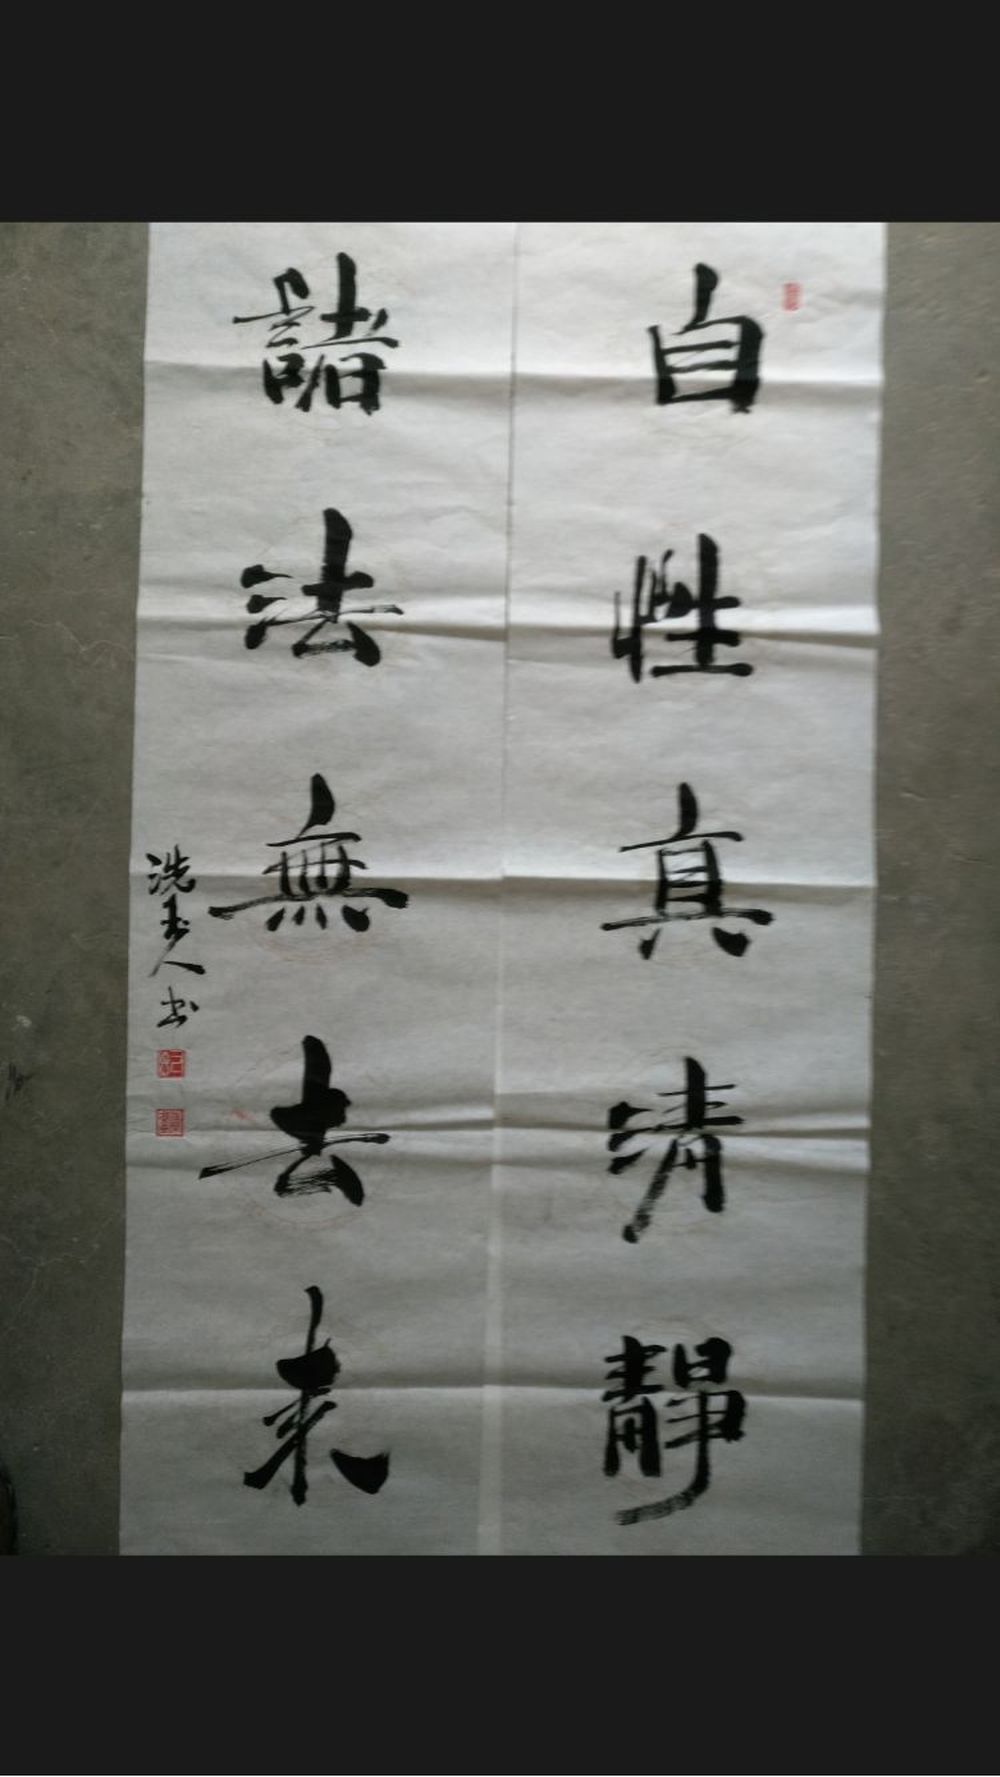 自性真清靜
諸法無去来
洗玉人书